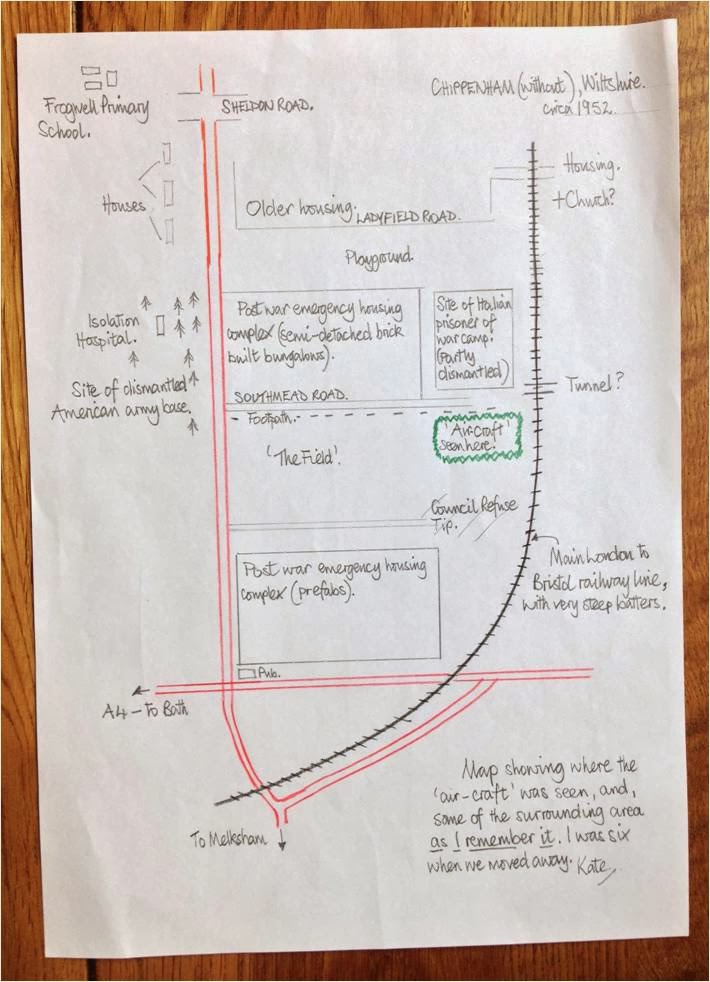 CHIPPENHAM (without), Wiltshire.
circa 1952.
Frogwell Primary
School.
SHELDON ROAD.
Housing.
+Church?
Houses
Older housing.
LADYFIELD ROAD.
Playground.
Isolation
Hospital.
Post war emergency housing
complex (semi-detached brick
built bungalows).
Site of Italian
prisoner of
war camp.
(Partly
dismantled)
Site of dismantled
American army base.
SOUTHMEAD ROAD.
Tunnel?
Footpath.
'Air-craft'
seen here.
'The Field'.
Council Refuse
Tip.
Main London to
Bristol railway line,
with very steep batters.
Post war emergency housing
complex (prefabs).
Pub.
A4 - To Bath
To Melksham
Map showing where the
'air-craft' was seen, and,
some of the surrounding area
as I remember it. I was six
when we moved away. Kate